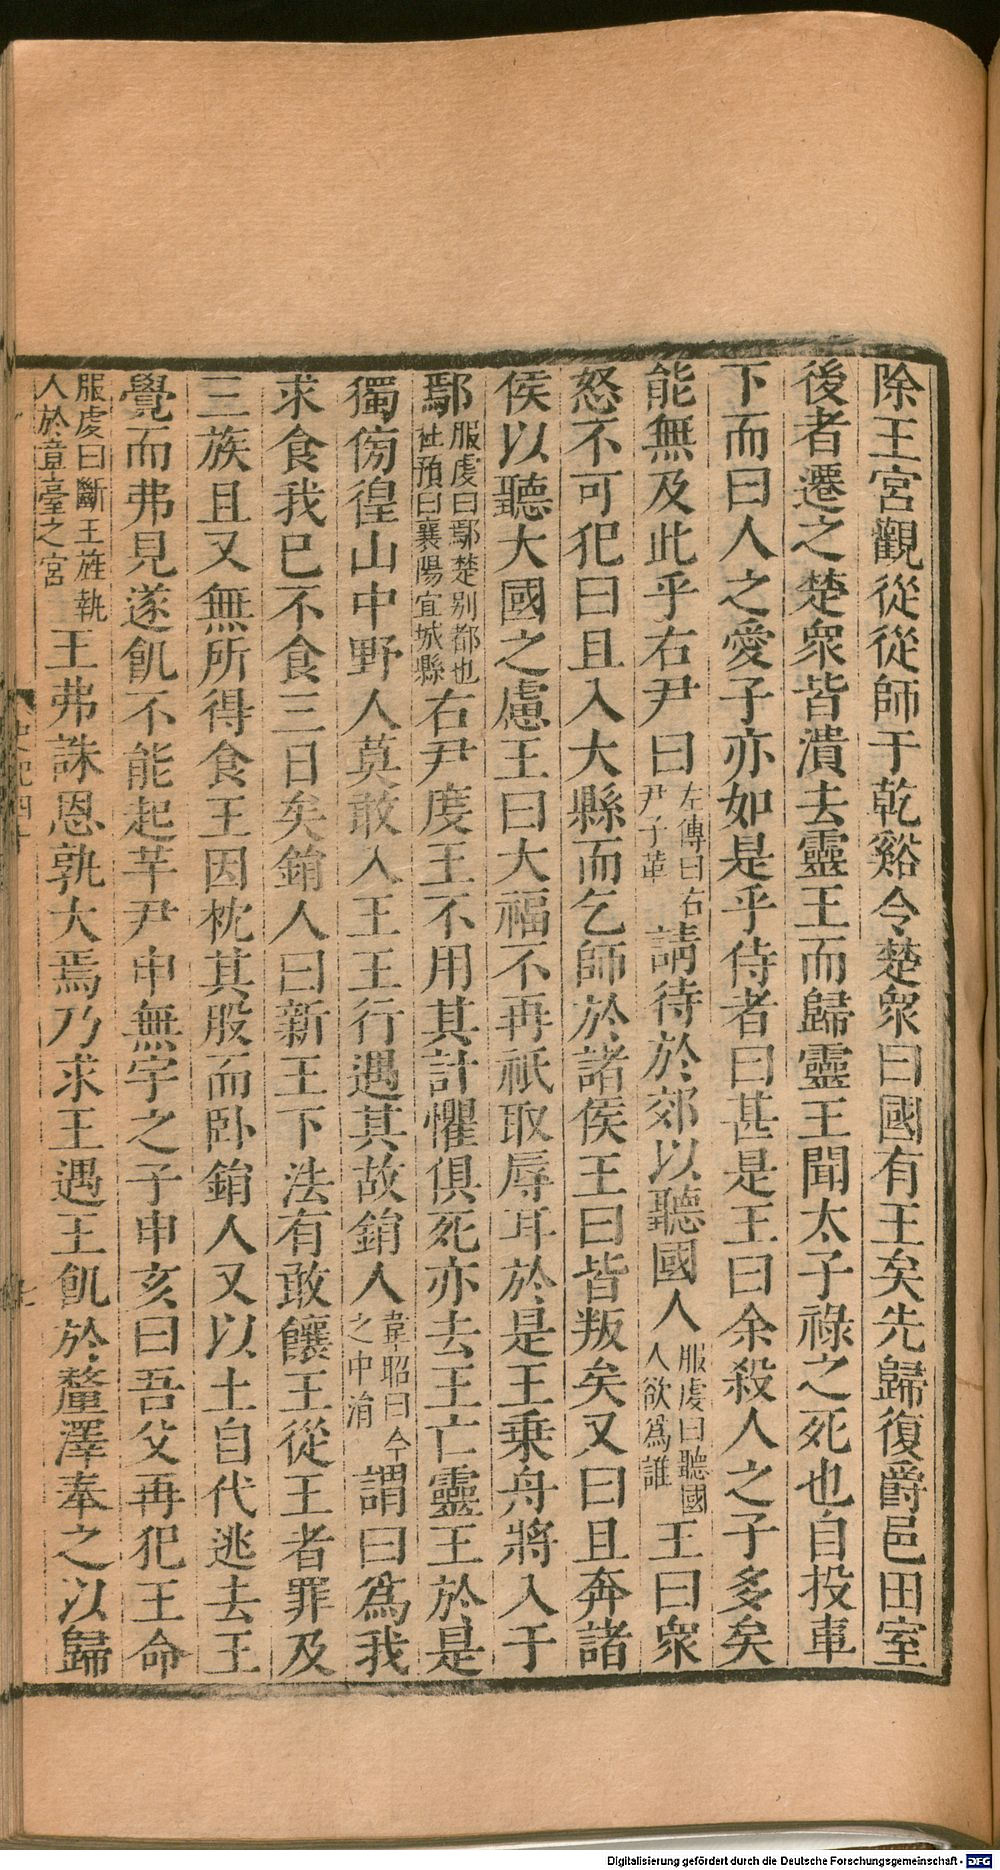 除王宮觀從從師于乾谿令楚衆曰國有王矣先歸復爵邑田室
後者遷之楚衆皆潰去靈王而歸靈王聞太子祿之死也自投車
下而曰人之愛子亦如是乎侍者曰甚是王曰余殺人之子多矣
能無及此乎右尹曰左傳曰右尹子革請待於郊以聽國人服虔曰聽國人欲爲誰王曰衆
怒不可犯曰且入大縣而乞師於諸侯王曰皆叛矣又曰且奔諸
侯以聽大國之慮王曰大福不再祇取辱耳於是王乘舟將入于
鄢服虔曰鄢楚别都也杜預曰襄陽宜城縣右尹度王不用其計懼俱死亦去王亡靈王於是
獨傍徨山中野人莫敢入王王行遇其故鋗人韋昭曰今之中涓謂曰爲我
求食我已不食三日矣鋗人曰新王下法有敢饟王從王者罪及
三族且又無所得食王因枕其股而卧鋗人又以土自代逃去王
覺而弗見遂飢不能起芊尹申無宇之子申亥曰吾父再犯王命
服虔曰斷王旌執人於章臺之宮王弗誅恩孰大焉乃求王遇王飢於釐澤奉之以歸
史記四十
七
Digitalisierung gefördert durch die Deutsche Forschungsgemeinschaft - DFG